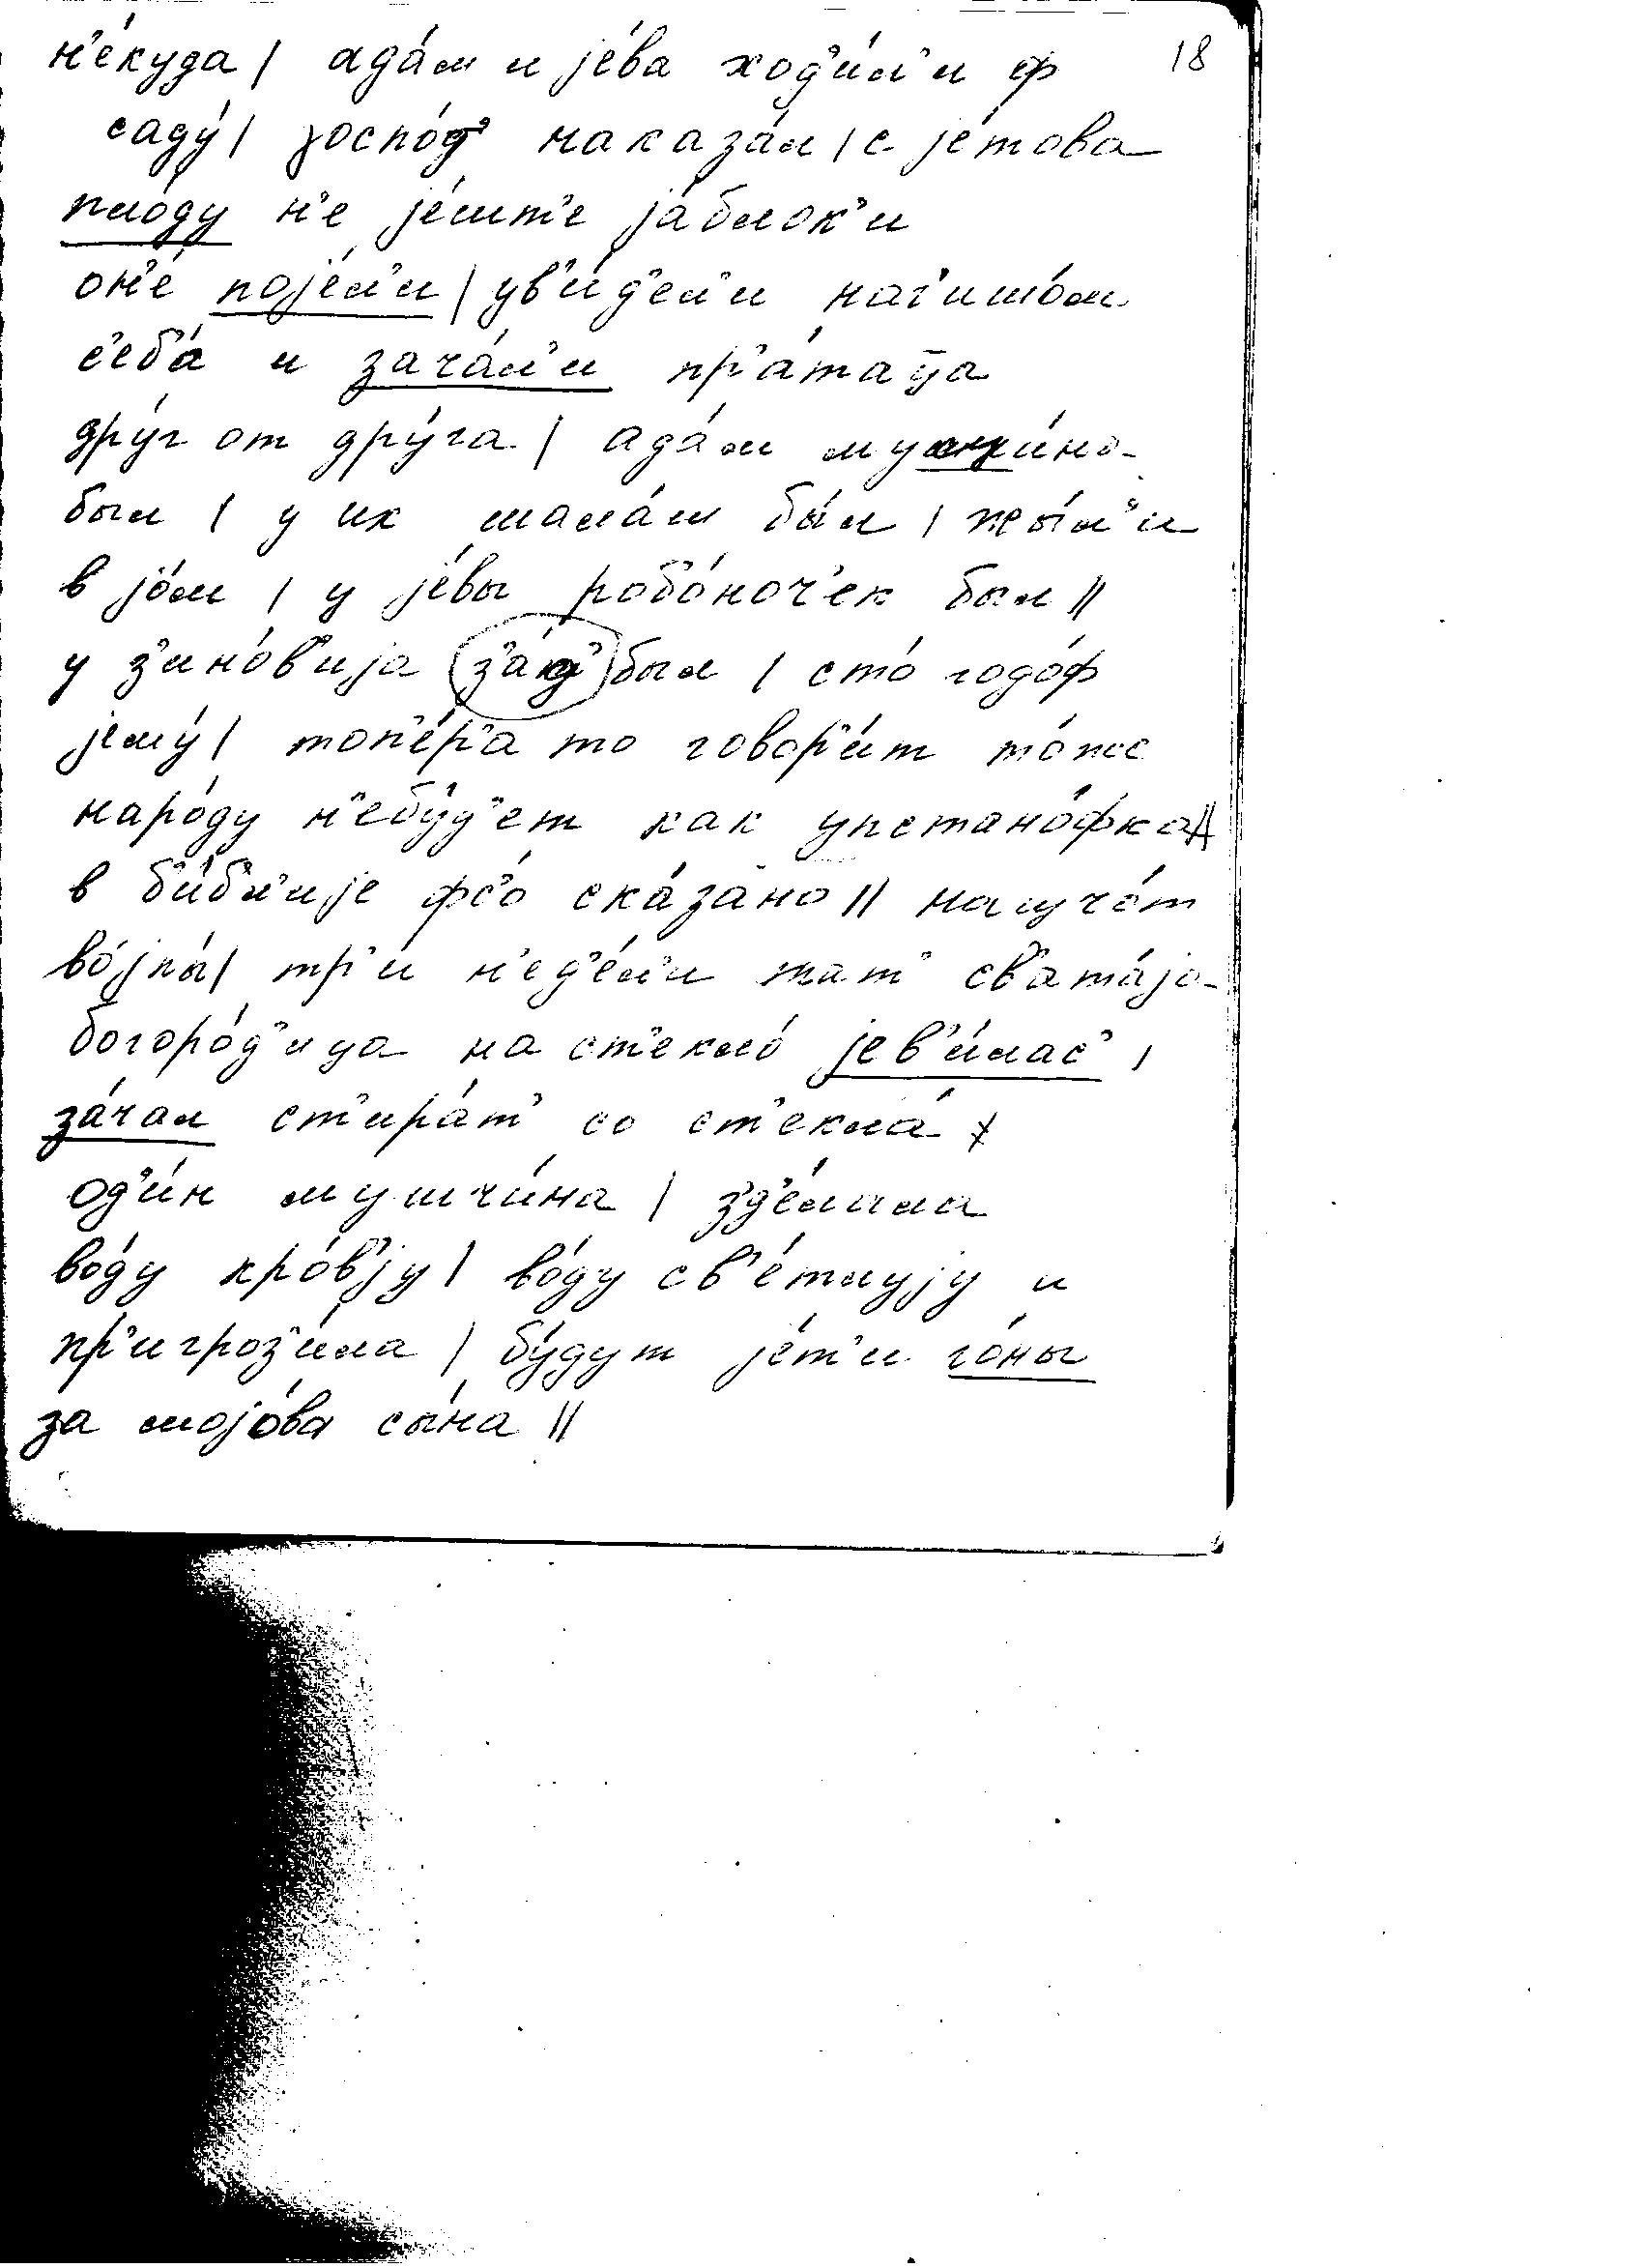 18
н'е́куда | ада́м и jе́ва ход'и́л'и ф
саду́ | γоспо́д' наказа́л | с jе́това
пло́ду н'е jе́шт'е jа́блок'и
он'е́ поjе́л'и | ув'и́д'ел'и наг'ишо́м
с'еб'а́ и зача́л'и пр'а́таца
дру́г от дру́га | ада́м мущи́на
был | у их шала́ш бы́л | жы́л'и
в jо́м | у jе́вы роб'о́ноч'ек был ||
у з'ино́в'иjа был | сто́ годо́ф
jему́ | топ'е́р'а то говор'и́т то́же
наро́ду н'ебу́д'ет как упстано́фка ||
в б'и́бл'иjе фс'о́ ска́зано || нащчо́т
воjны́ | тр'и́ н'ед'е́л'и тат' св'ата́jа
богоро́д'ица на ст'екло́ jев'и́лас' |
за́чал ст'ира́т' со ст'екла́
од'и́н мушчи́на | з'д'е́лала
во́ду кро́в'jу | во́ду св'е́тлуjу и
пр'игроз'и́ла | бу́дут jе́т'и го́ны
за моjо́ва сы́на ||